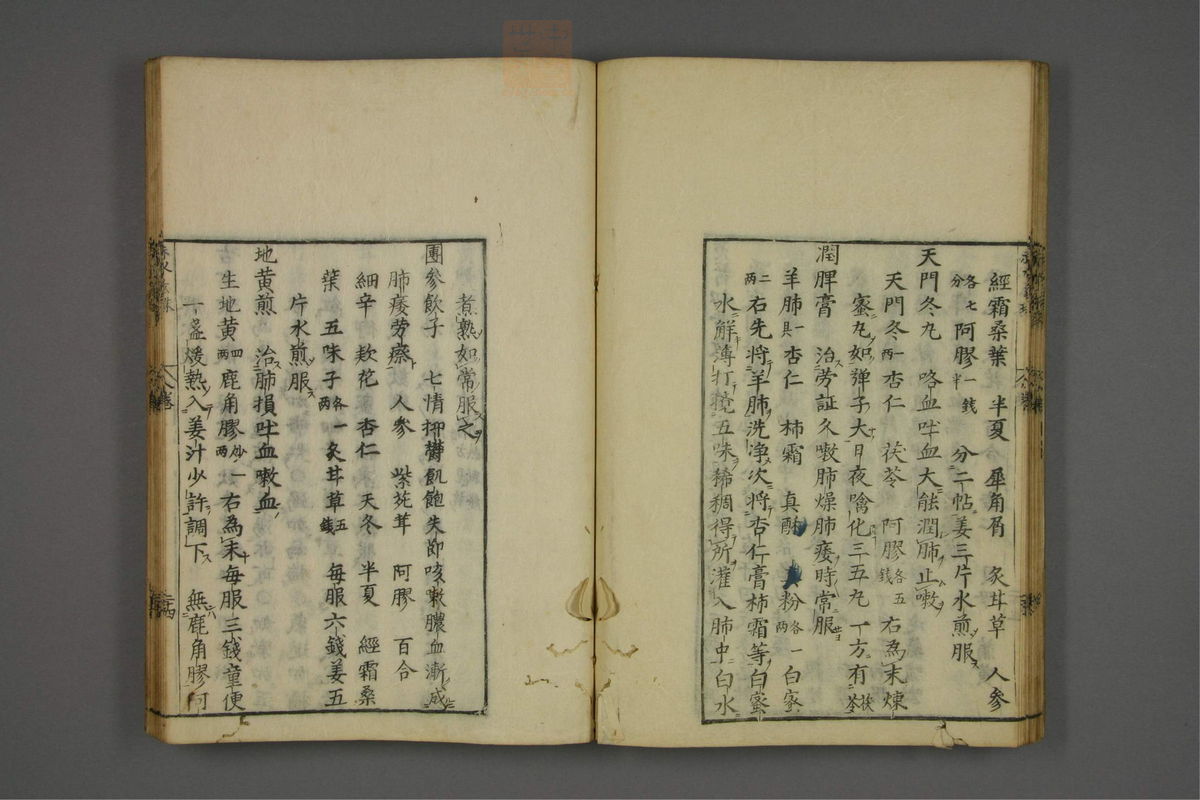 經霜桑葉 半夏 犀角屑 炙甘草 人参
各七分 阿膠一錢半 分二帖姜三片水煎服
天門冬丸 咯血吐血大能潤肺止嗽
天門冬一两 杏仁 茯苓 阿膠各五錢 右為末煉
蜜丸如弾子大日夜噙化三五丸一方有茯苓
潤脾膏 治労証久嗽肺燥肺痿時常服
羊肺一具 杏仁 柿霜 真酥 粉各一两 白蜜
二两 右先将羊肺洗净次将杏仁膏柿霜等白蜜
水解薄打撹五味稀稠得所灌入肺中白水
煮熟如常服之
團参飲子 七情抑鬱飢飽失節咳嗽膿血漸成
肺痿労瘵 人参 紫苑茸 阿膠 百合
細辛 款花 杏仁 天冬 半夏 經霜桑
葉 五味子各一两 炙甘草五錢 毎服六錢姜五
片水煎服
地黄煎 治肺損吐血嗽血
生地黄四两 鹿角膠炒一两 右為末毎服三錢童便
一盞煖熱入姜汁少許調下 無鹿角膠阿